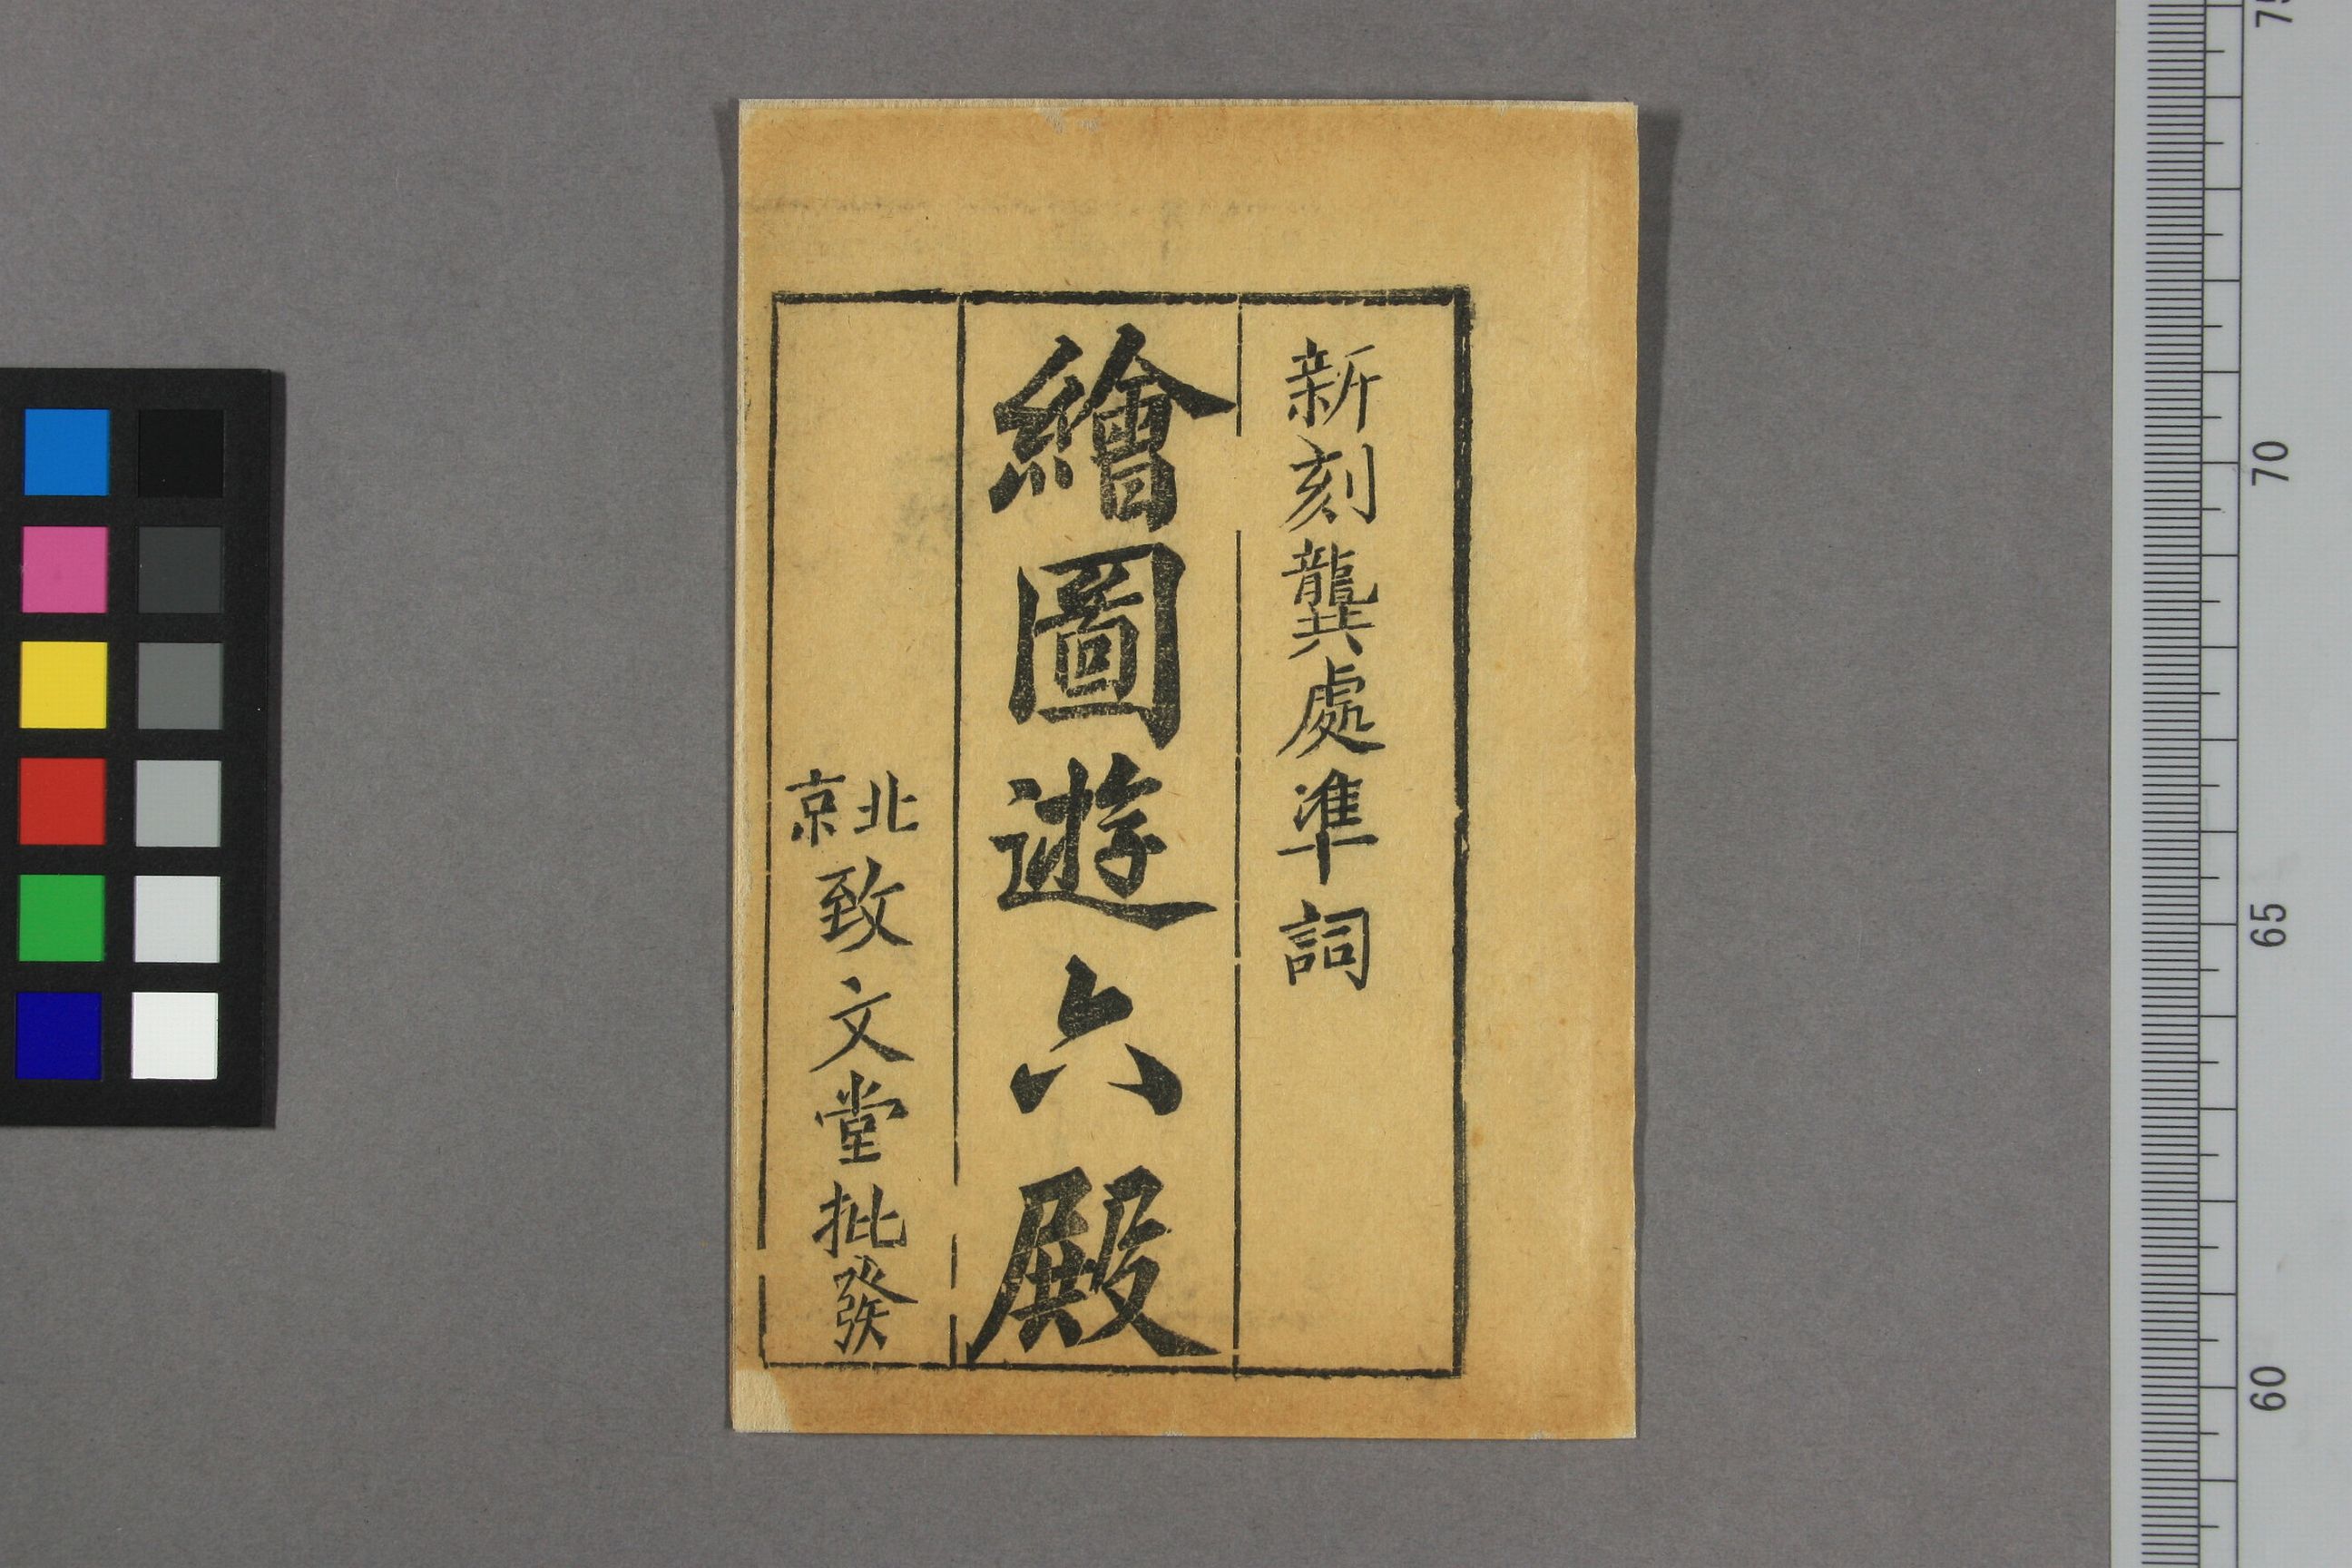 新刻龔處準詞
繪圖遊六殿
北京致文堂批發
75
70
65
60